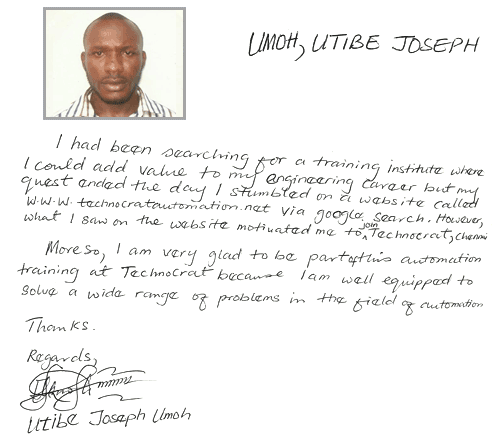 UMOH, UTIBE JOSEPH
I had been searching for a training institute where
I could add value to my engineering career but my
quest ended the day I stumbled on a website called
W.W.W. technocratautomation.net via google search. However,
what I saw on the website motivated me to join Technocrat, chennai
Moreso, I am very glad to be part of this automation
training at Technocrat because I am well equipped to
solve a wide range of problems in the field of automation
Thanks.
Regards,
Utibe Joseph Umoh